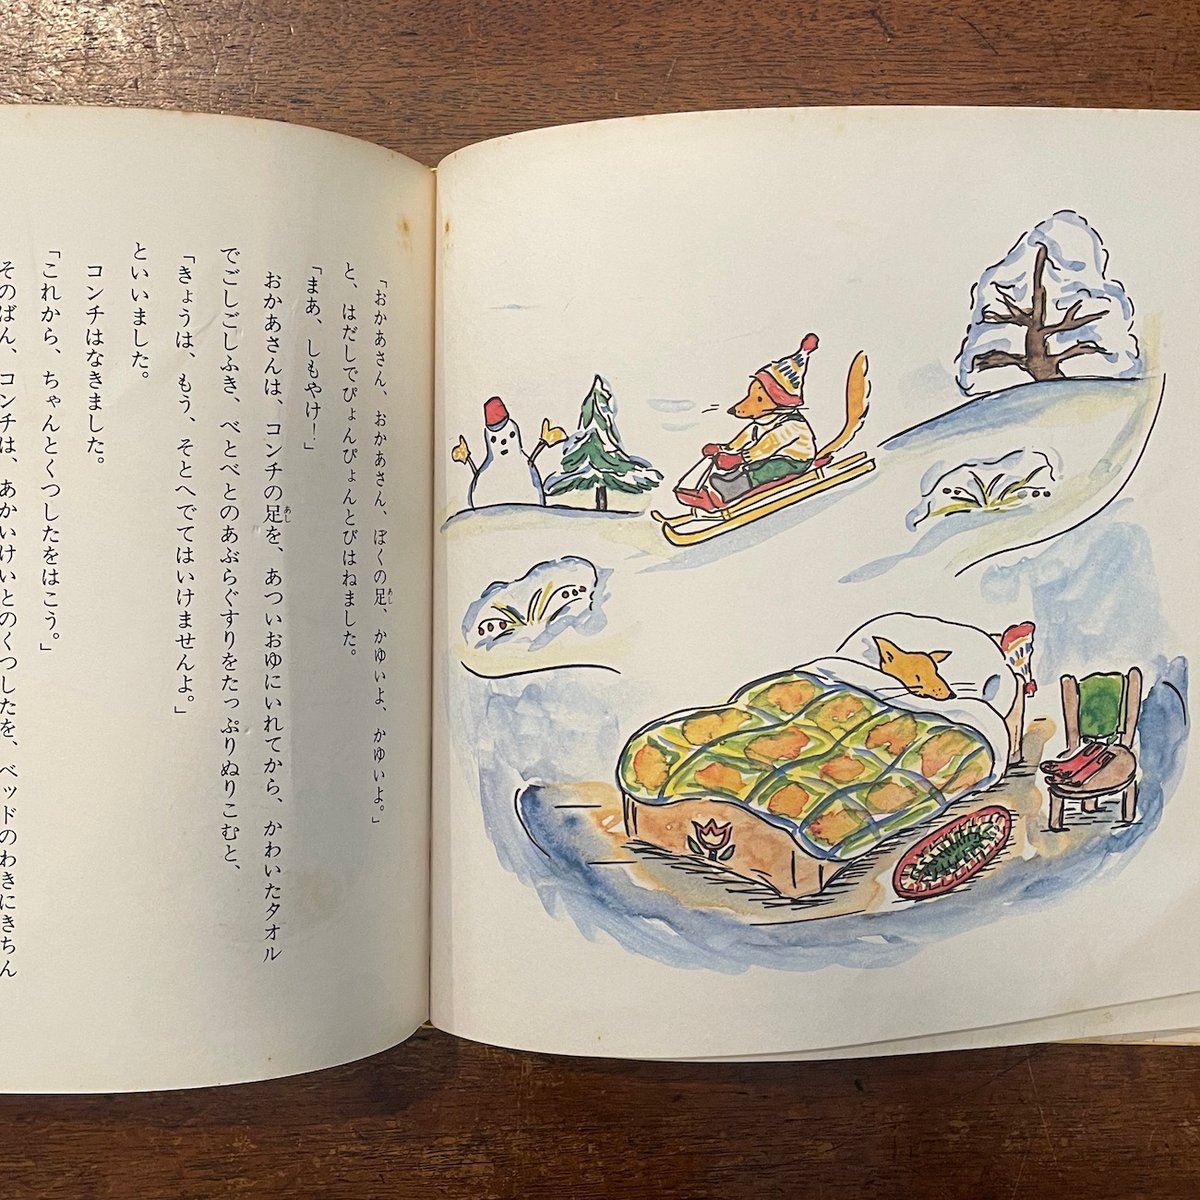 「おかあさん、おかあさん、ぼくの足、かゆいよ、かゆいよ。」
と、はだしでぴょんぴょんとびはねました。
「まあ、しもやけ！」
おかあさんは、コンチの足を、あついおゆにいれてから、かわいたタオル
でごしごしふき、べとべとのあぶらぐすりをたっぷりぬりこむと、
「きょうは、もう、そとへでてはいけませんよ。」
といいました。
コンチはなきました。
「これから、ちゃんとくつしたをはこう。」
そのばん、コンチは、あかいけいとのくつしたを、ベッドのわきにきちん